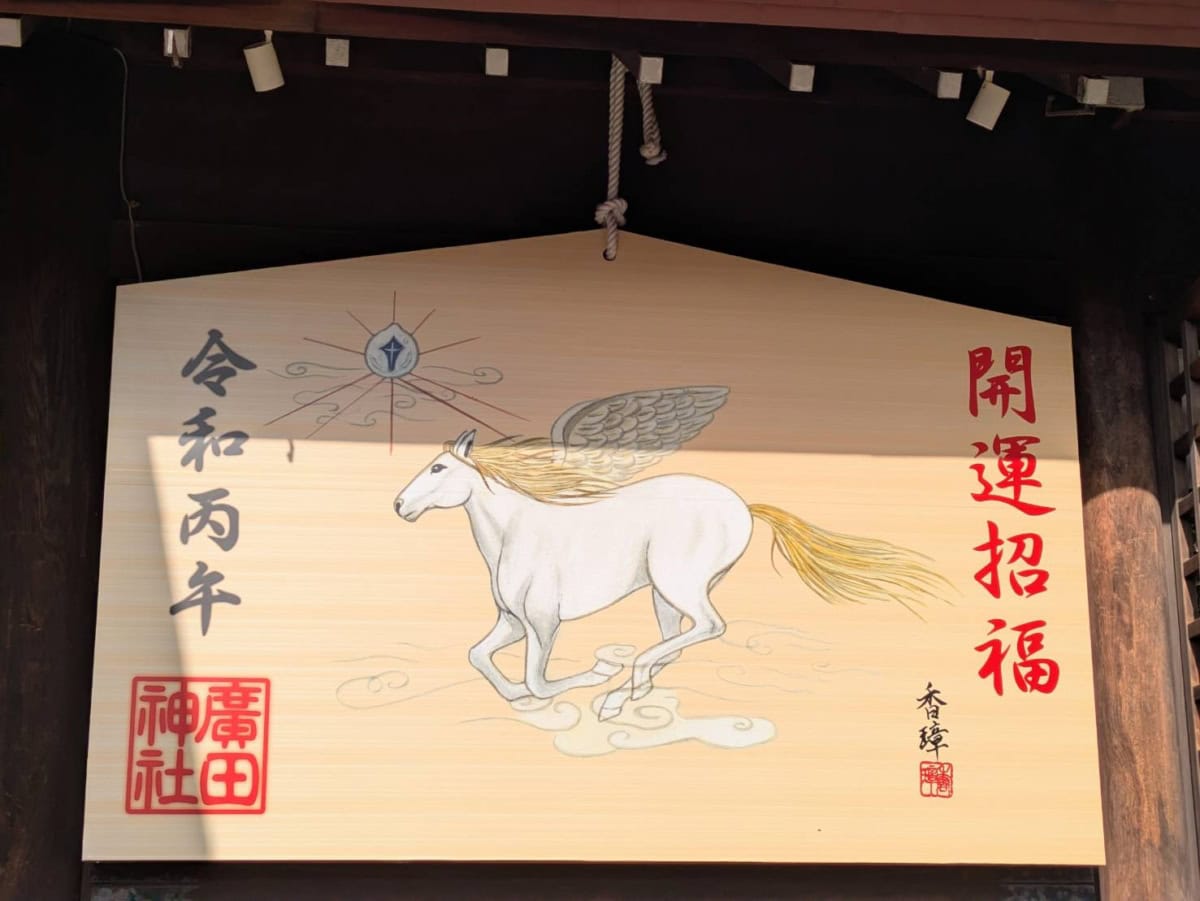 開運招福
香璋
令和丙午
廣田
神社